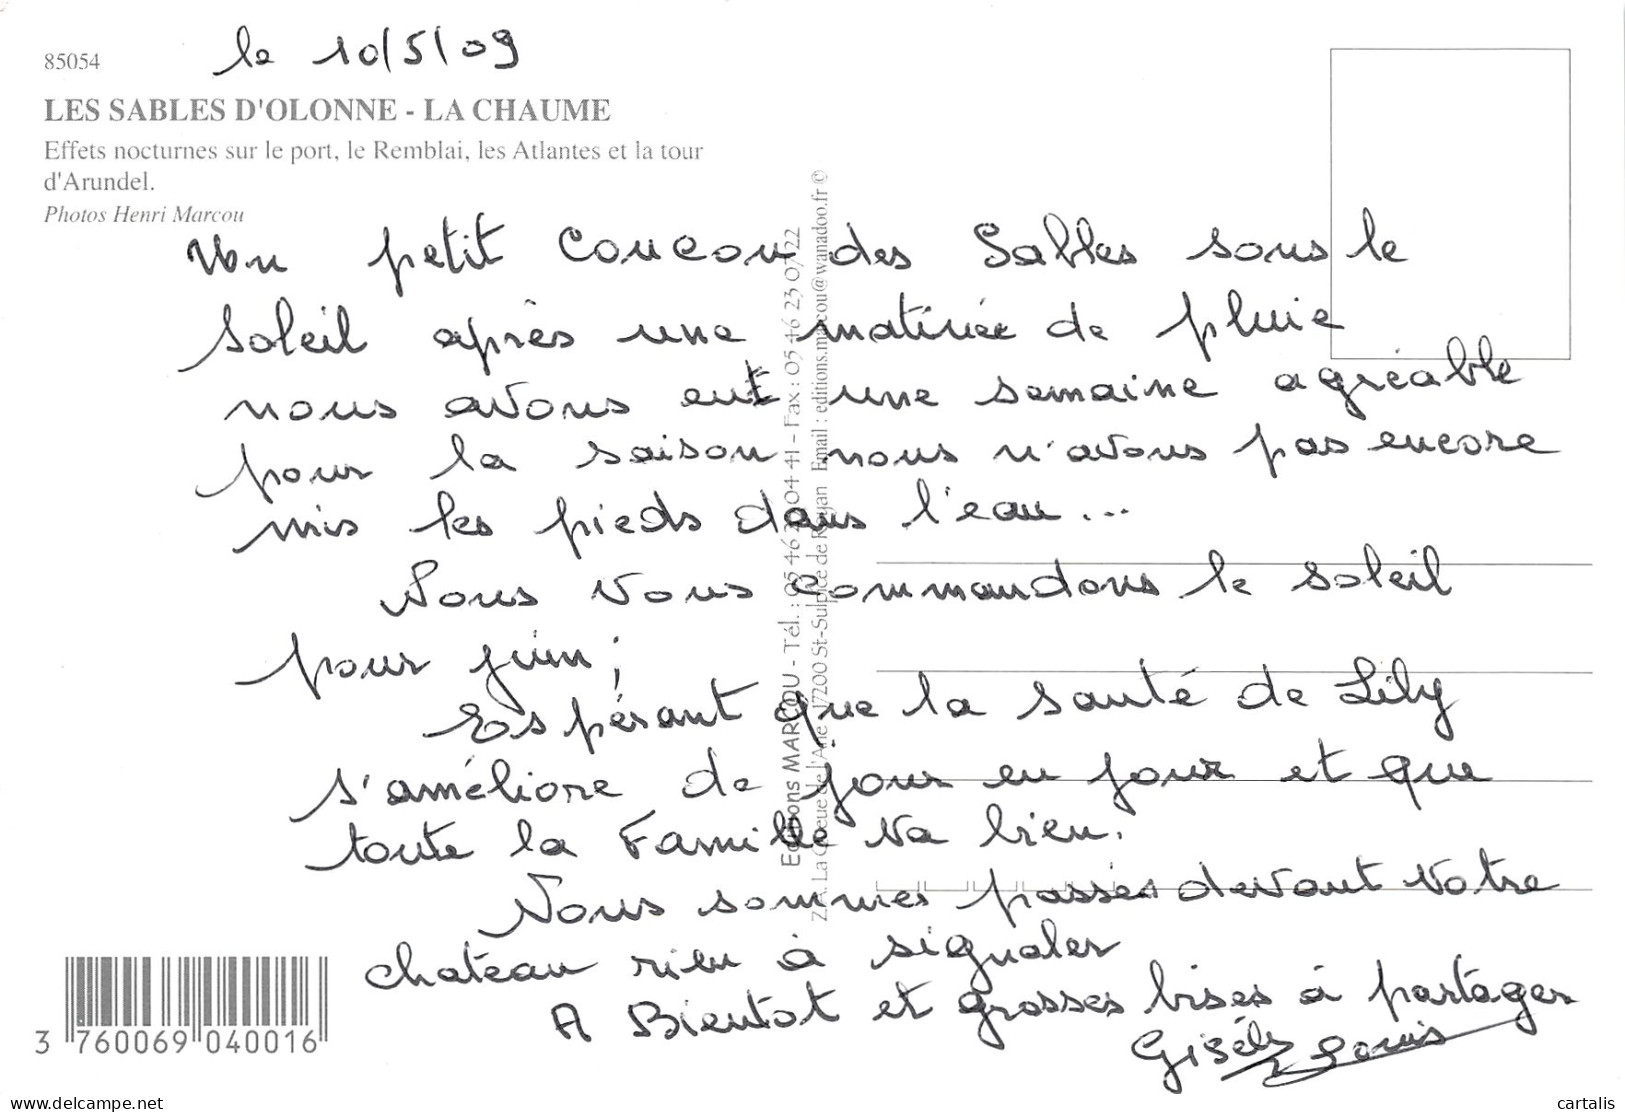 le 10/5/09
85054
LES SABLES D'OLONNE - LA CHAUME
Effets nocturnes sur le port, le Remblai, les Atlantes et la tour
d'Arundel.
Photos Henri Marcou
Un petit coucou des Sables sous le
soleil après une matinée de pluie
nous avons eut une semaine agréable
pour la saison nous n'avons pas encore
mis les pieds dans l'eau...
Nous vous commandons le soleil
pour juin;
Espérant que la santé de Lily
s'améliore de jour en jour et que
toute la Famille va bien.
Nous sommes passés devant votre
chateau rien à signaler
A Bientot et grosses bises à partager
Gisèle Louis
Editions MARCOU - Tél. : 05 46 23 04 41 - Fax : 05 46 23 07 22
Z.A. La Queue de l'Ane 17200 St-Sulpice de Royan Email : editions.marcou@wanadoo.fr ©
3 760069 040016
cartalis
delcampe.net